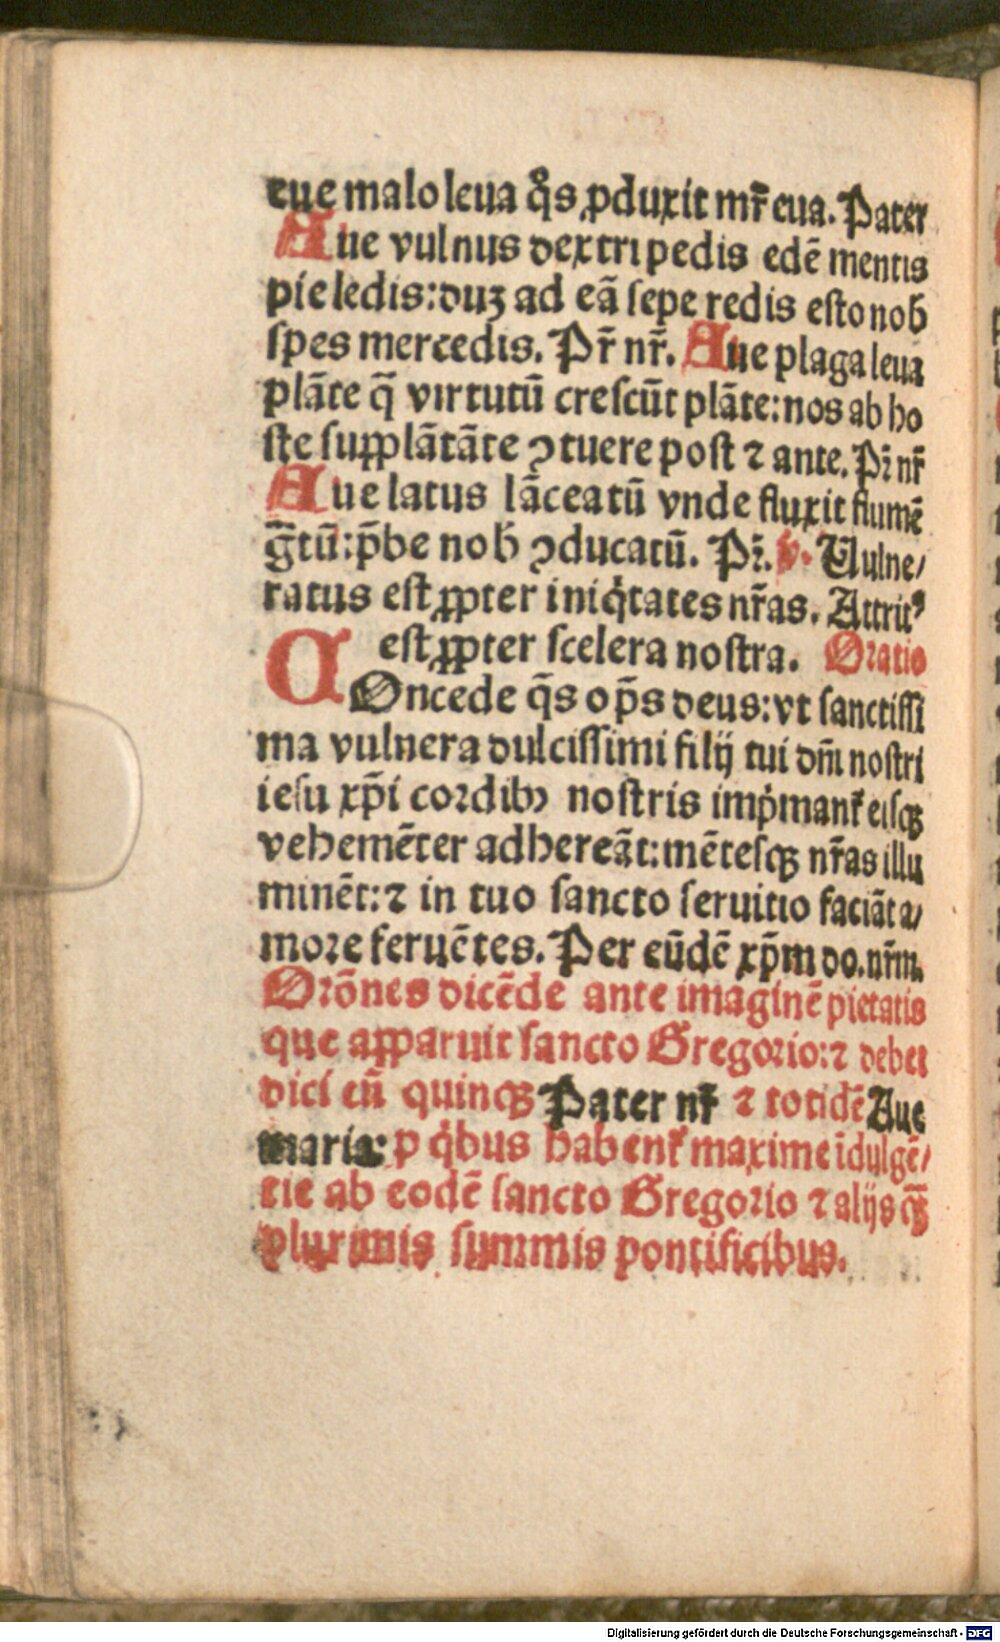 eue malo leua q̊s ꝓduxit mr̃ eua. Pater
Aue vulnus dextri pedis edē mentis
pie ledis: duꝫ ad eā sepe redis esto nob̄
spes mercedis. Pr̃ nr̃. Aue plaga leua
plāte q̄ virtutū crescūt plāte: nos ab ho
ste supplātāte ꝯtuere post ⁊ ante. Pr̃ nr̃
Aue latus lāceatū vnde fluxit flumē
g̃tū: p̄be nob̄ ꝯducatū. Pr̃. v. Vulne/
ratus est ꝓpter iniq̇tates nr̃as. Attritꝰ
est ꝓpter scelera nostra. Oratio
COncede q̄s op̄s deus: vt sanctissi
ma vulnera dulcissimi filij tui dn̄i nostri
iesu xp̄i cordibꝫ nostris imp̍mant᷑ eisqꝫ
vehemēter adhereāt: mētesqꝫ nr̃as illu
minēt: ⁊ in tuo sancto seruitio faciāt a/
more feruētes. Per eūdē xp̄m do. nr̄m.
Orōnes dicēde ante imaginē pietatis
que apparuit sancto Gregorio: ⁊ debet
dici cū quinqꝫ Pater nr̃ ⁊ totidē Aue
maria: p q̇bus habent᷑ maxime īdulgē/
tie ab eodē sancto Gregorio ⁊ alijs qꝫ̄
plurimis summis pontificibus.
Digitalisierung gefördert durch die Deutsche Forschungsgemeinschaft - DFG